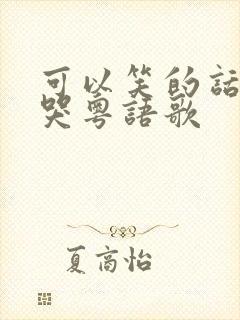 可以笑的話
哭粵語歌
夏高怡